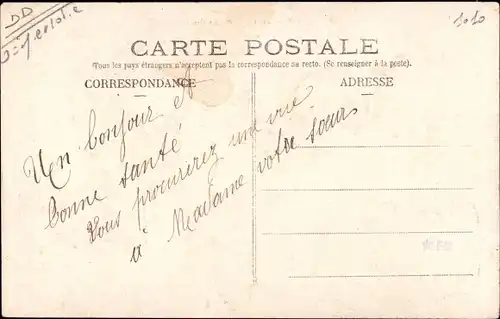 DD
1010
CARTE POSTALE
Tous les pays étrangers n'acceptent pas la correspondance au recto. (Se renseigner à la poste).
CORRESPONDANCE
ADRESSE
Un bonjour et
bonne santé
Vous procurerez une vue
à Madame votre sœur